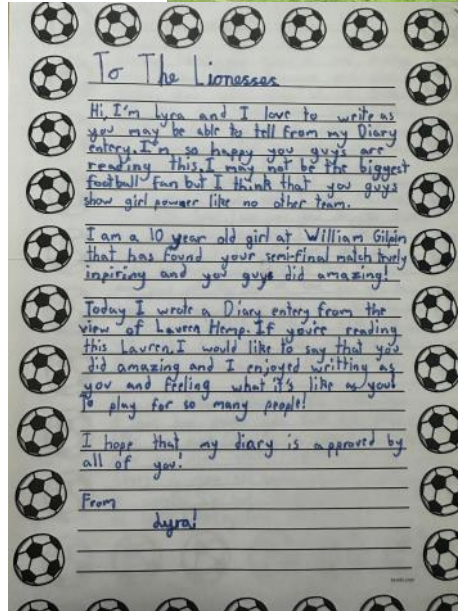 To The Lionesses
Hi, I'm Lyra and I love to write as
you may be able to tell from my Diary
entery. I'm so happy you guys are
reading this. I may not be the biggest
football fan but I think that you guys
show girl powner like no other team.
I am a 10 year old girl at William Gilpin
that has found your semi-final match truely
inpiring and you guys did amazing!
Today I wrote a Diary entery from the
view of Lauren Hemp. If you're reading
this Lauren, I would like to say that you
did amazing and I enjoyed writting as
you and feeling what it's like as you!
To play for so many people!
I hope that my diary is approved by
all of you!
From
Lyra!